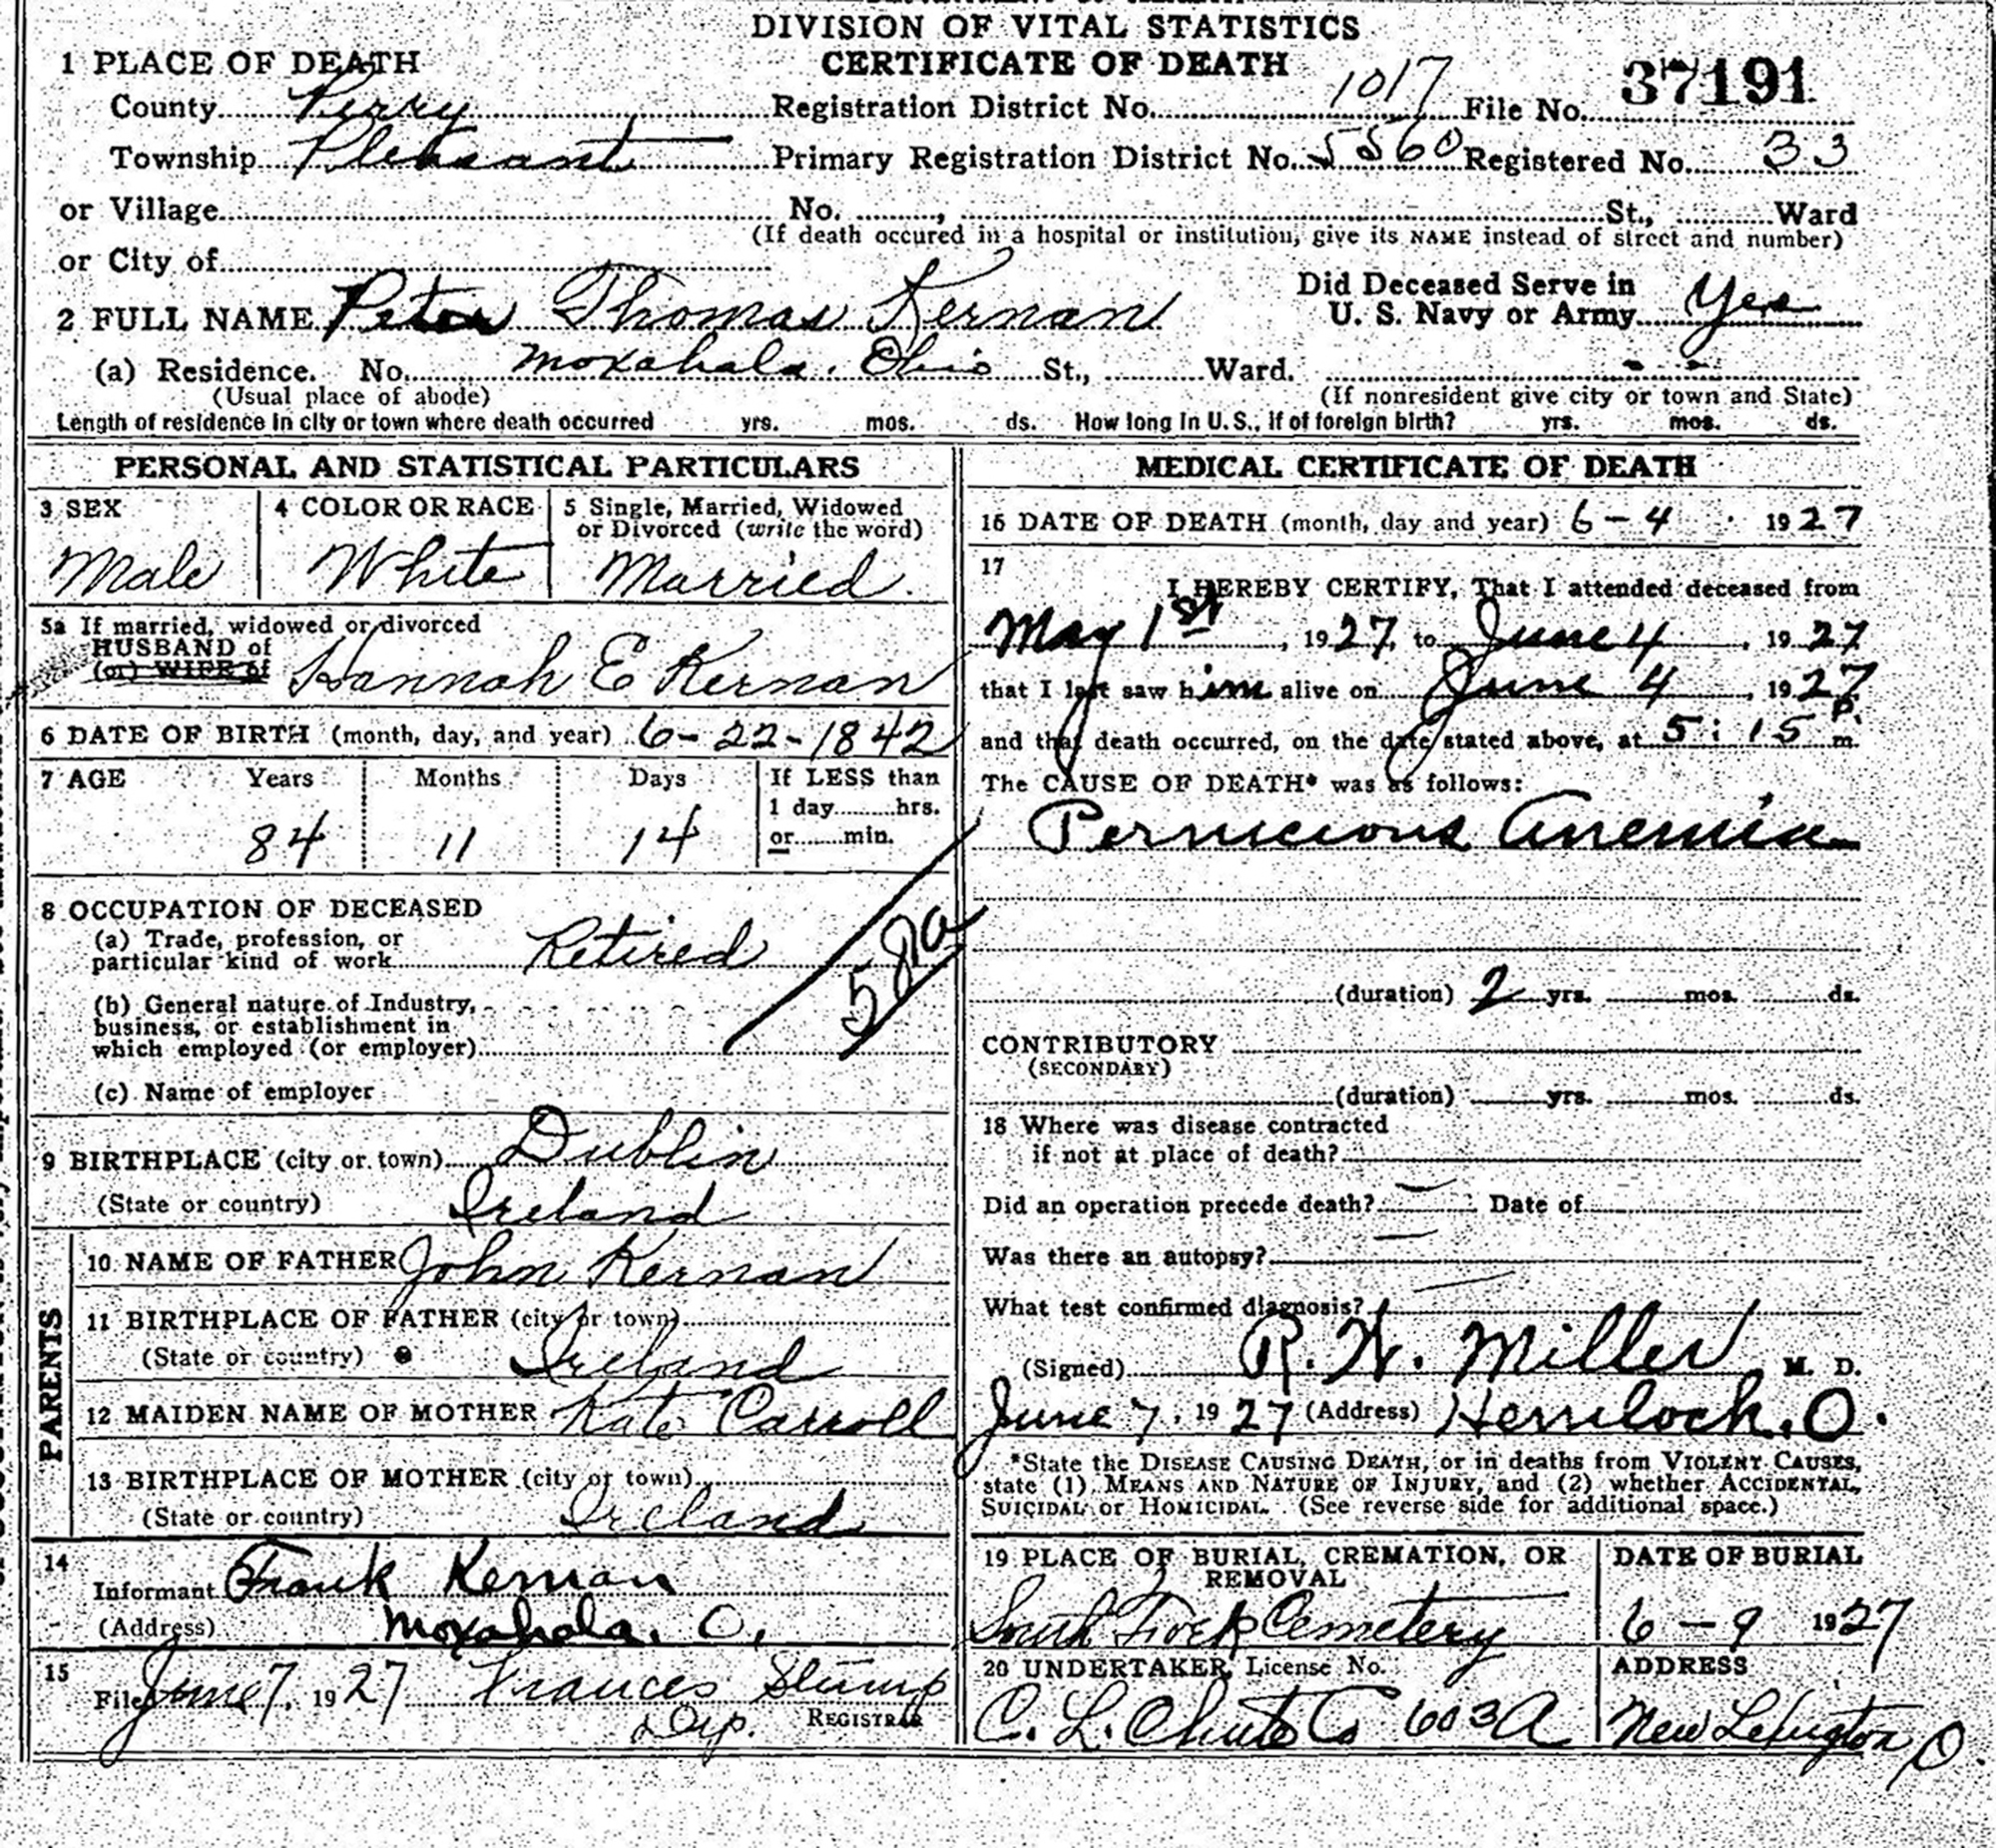 DIVISION OF VITAL STATISTICS
CERTIFICATE OF DEATH
1 PLACE OF DEATH
County Perry Registration District No. 1017 File No. 37191
Township Pleasant Primary Registration District No. 5560 Registered No. 33
or Village No. , St., Ward
(If death occured in a hospital or institution, give its NAME instead of street and number)
or City of
2 FULL NAME Peter Thomas Kernan Did Deceased Serve in U. S. Navy or Army Yes
(a) Residence. No. Moxahala. Ohio St., Ward.
(Usual place of abode) (If nonresident give city or town and State)
Length of residence in city or town where death occurred yrs. mos. ds. How long in U. S., if of foreign birth? yrs. mos. ds.
PERSONAL AND STATISTICAL PARTICULARS
3 SEX 4 COLOR OR RACE 5 Single, Married, Widowed
or Divorced (write the word)
Male White Married.
5a If married, widowed or divorced
HUSBAND of
(or) WIFE of Hannah E Kernan
6 DATE OF BIRTH (month, day, and year) 6-22-1842
7 AGE Years Months Days If LESS than
1 day hrs.
84 11 14 or min.
8 OCCUPATION OF DECEASED
(a) Trade, profession, or
particular kind of work Retired
58a
(b) General nature of Industry,
business, or establishment in
which employed (or employer)
(c) Name of employer
9 BIRTHPLACE (city or town) Dublin
(State or country) Ireland
PARENTS
10 NAME OF FATHER John Kernan
11 BIRTHPLACE OF FATHER (city or town)
(State or country) Ireland
12 MAIDEN NAME OF MOTHER Kate Carroll
13 BIRTHPLACE OF MOTHER (city or town)
(State or country) Ireland
14
Informant Frank Kernan
(Address) Moxahala. O.
15
Filed June 7, 1927 Frances Stump
Dep. REGISTRAR
MEDICAL CERTIFICATE OF DEATH
16 DATE OF DEATH (month, day and year) 6-4 1927
17
I HEREBY CERTIFY, That I attended deceased from
May 1st, 1927, to June 4, 1927
that I last saw him alive on June 4, 1927
and that death occurred, on the date stated above, at 5:15 P. m.
The CAUSE OF DEATH* was as follows:
Pernicious Anemia
(duration) 2 yrs. mos. ds.
CONTRIBUTORY
(SECONDARY)
(duration) yrs. mos. ds.
18 Where was disease contracted
if not at place of death?
Did an operation precede death? Date of
Was there an autopsy?
What test confirmed diagnosis?
(Signed) R. W. Miller M. D.
June 7, 1927 (Address) Hemlock, O.
*State the DISEASE CAUSING DEATH, or in deaths from VIOLENT CAUSES,
state (1) MEANS AND NATURE OF INJURY, and (2) whether ACCIDENTAL,
SUICIDAL or HOMICIDAL. (See reverse side for additional space.)
19 PLACE OF BURIAL, CREMATION, OR
REMOVAL
South Fork Cemetery
DATE OF BURIAL
6-9 1927
20 UNDERTAKER, License No.
C. L. Chute Co 603A
ADDRESS
New Lexington O.